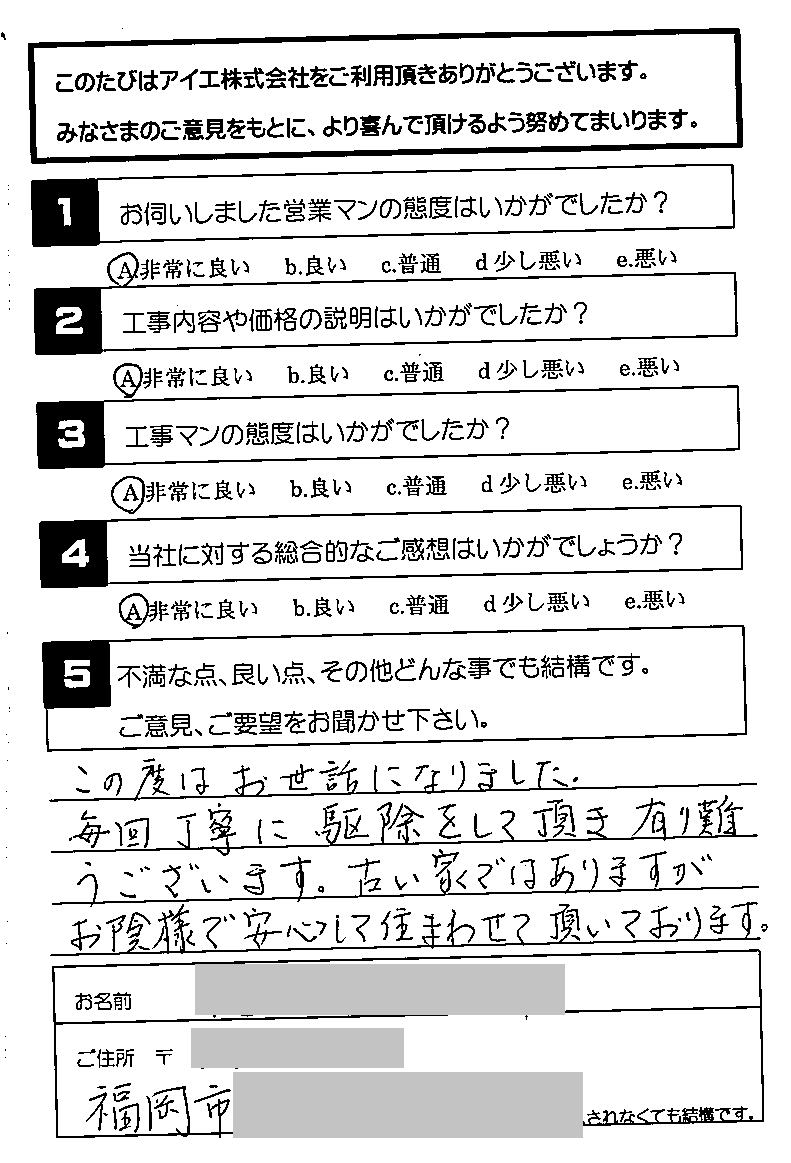 このたびはアイエ株式会社をご利用頂きありがとうございます。
みなさまのご意見をもとに、より喜んで頂けるよう努めてまいります。
1 お伺いしました営業マンの態度はいかがでしたか？
A非常に良い b.良い c.普通 d少し悪い e.悪い
2 工事内容や価格の説明はいかがでしたか？
A非常に良い b.良い c.普通 d少し悪い e.悪い
3 工事マンの態度はいかがでしたか？
A非常に良い b.良い c.普通 d少し悪い e.悪い
4 当社に対する総合的なご感想はいかがでしょうか？
A非常に良い b.良い c.普通 d少し悪い e.悪い
5 不満な点、良い点、その他どんな事でも結構です。
ご意見、ご要望をお聞かせ下さい。
この度はお世話になりました.
毎回丁寧に駆除をして頂き有り難
うございます。古い家ではありますが
お陰様で安心して住まわせて頂いております。
お名前
ご住所 〒
福岡市
されなくても結構です。